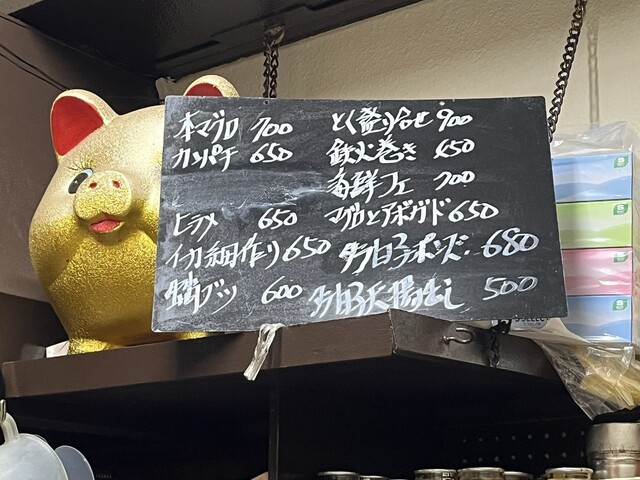 本マグロ 700
カンパチ 650
ヒラメ 650
イカ細作り 650
蛸ブツ 600
とく盛り合せ 900
鉄火巻き 650
海鮮フェ 700
マグロとアボガド 650
タラ白子ポンズ 680
タラ白子天 500